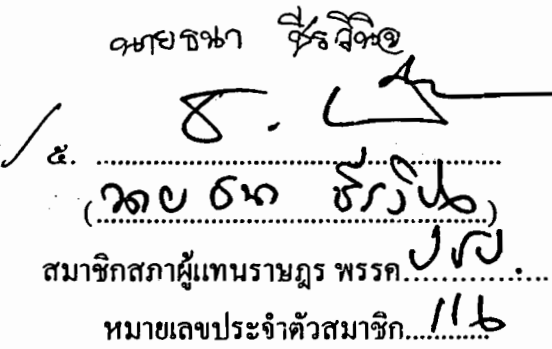 นายธนา ชีรวินิจ
/ ๕.
(นาย ธนา ชีรวินิจ)
สมาชิกสภาผู้แทนราษฎร พรรค ปชป.
หมายเลขประจำตัวสมาชิก 116